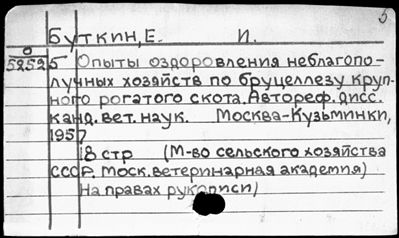 5
Буткин, Е. И.
О
5252
5 Опыты оздоровления неблагопо-
лучных хозяйств по бруцеллезу круп-
ного рогатого скота. Автореф. дисс.
канд. вет. наук. Москва-Кузьминки,
1957
18 стр (М-во сельского хозяйства
СССР. Моск. ветеринарная академия)
На правах рукописи)